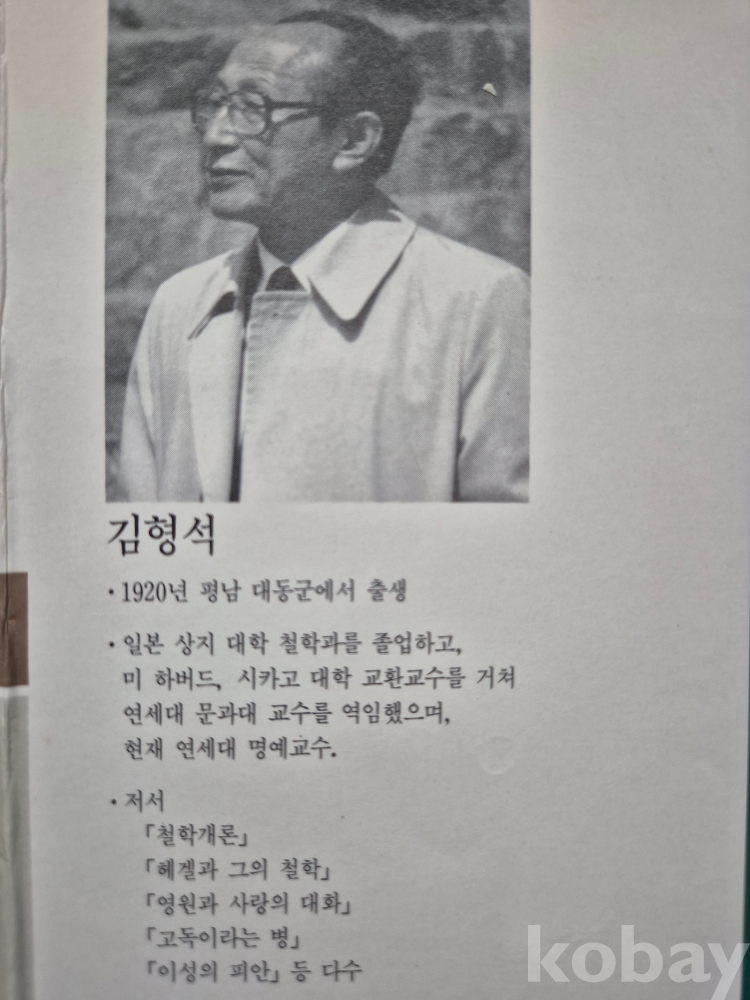 김형석
· 1920년 평남 대동군에서 출생
· 일본 상지 대학 철학과를 졸업하고,
미 하버드, 시카고 대학 교환교수를 거쳐
연세대 문과대 교수를 역임했으며,
현재 연세대 명예교수.
· 저서
「철학개론」
「헤겔과 그의 철학」
「영원과 사랑의 대화」
「고독이라는 병」
「이성의 피안」 등 다수
kobay